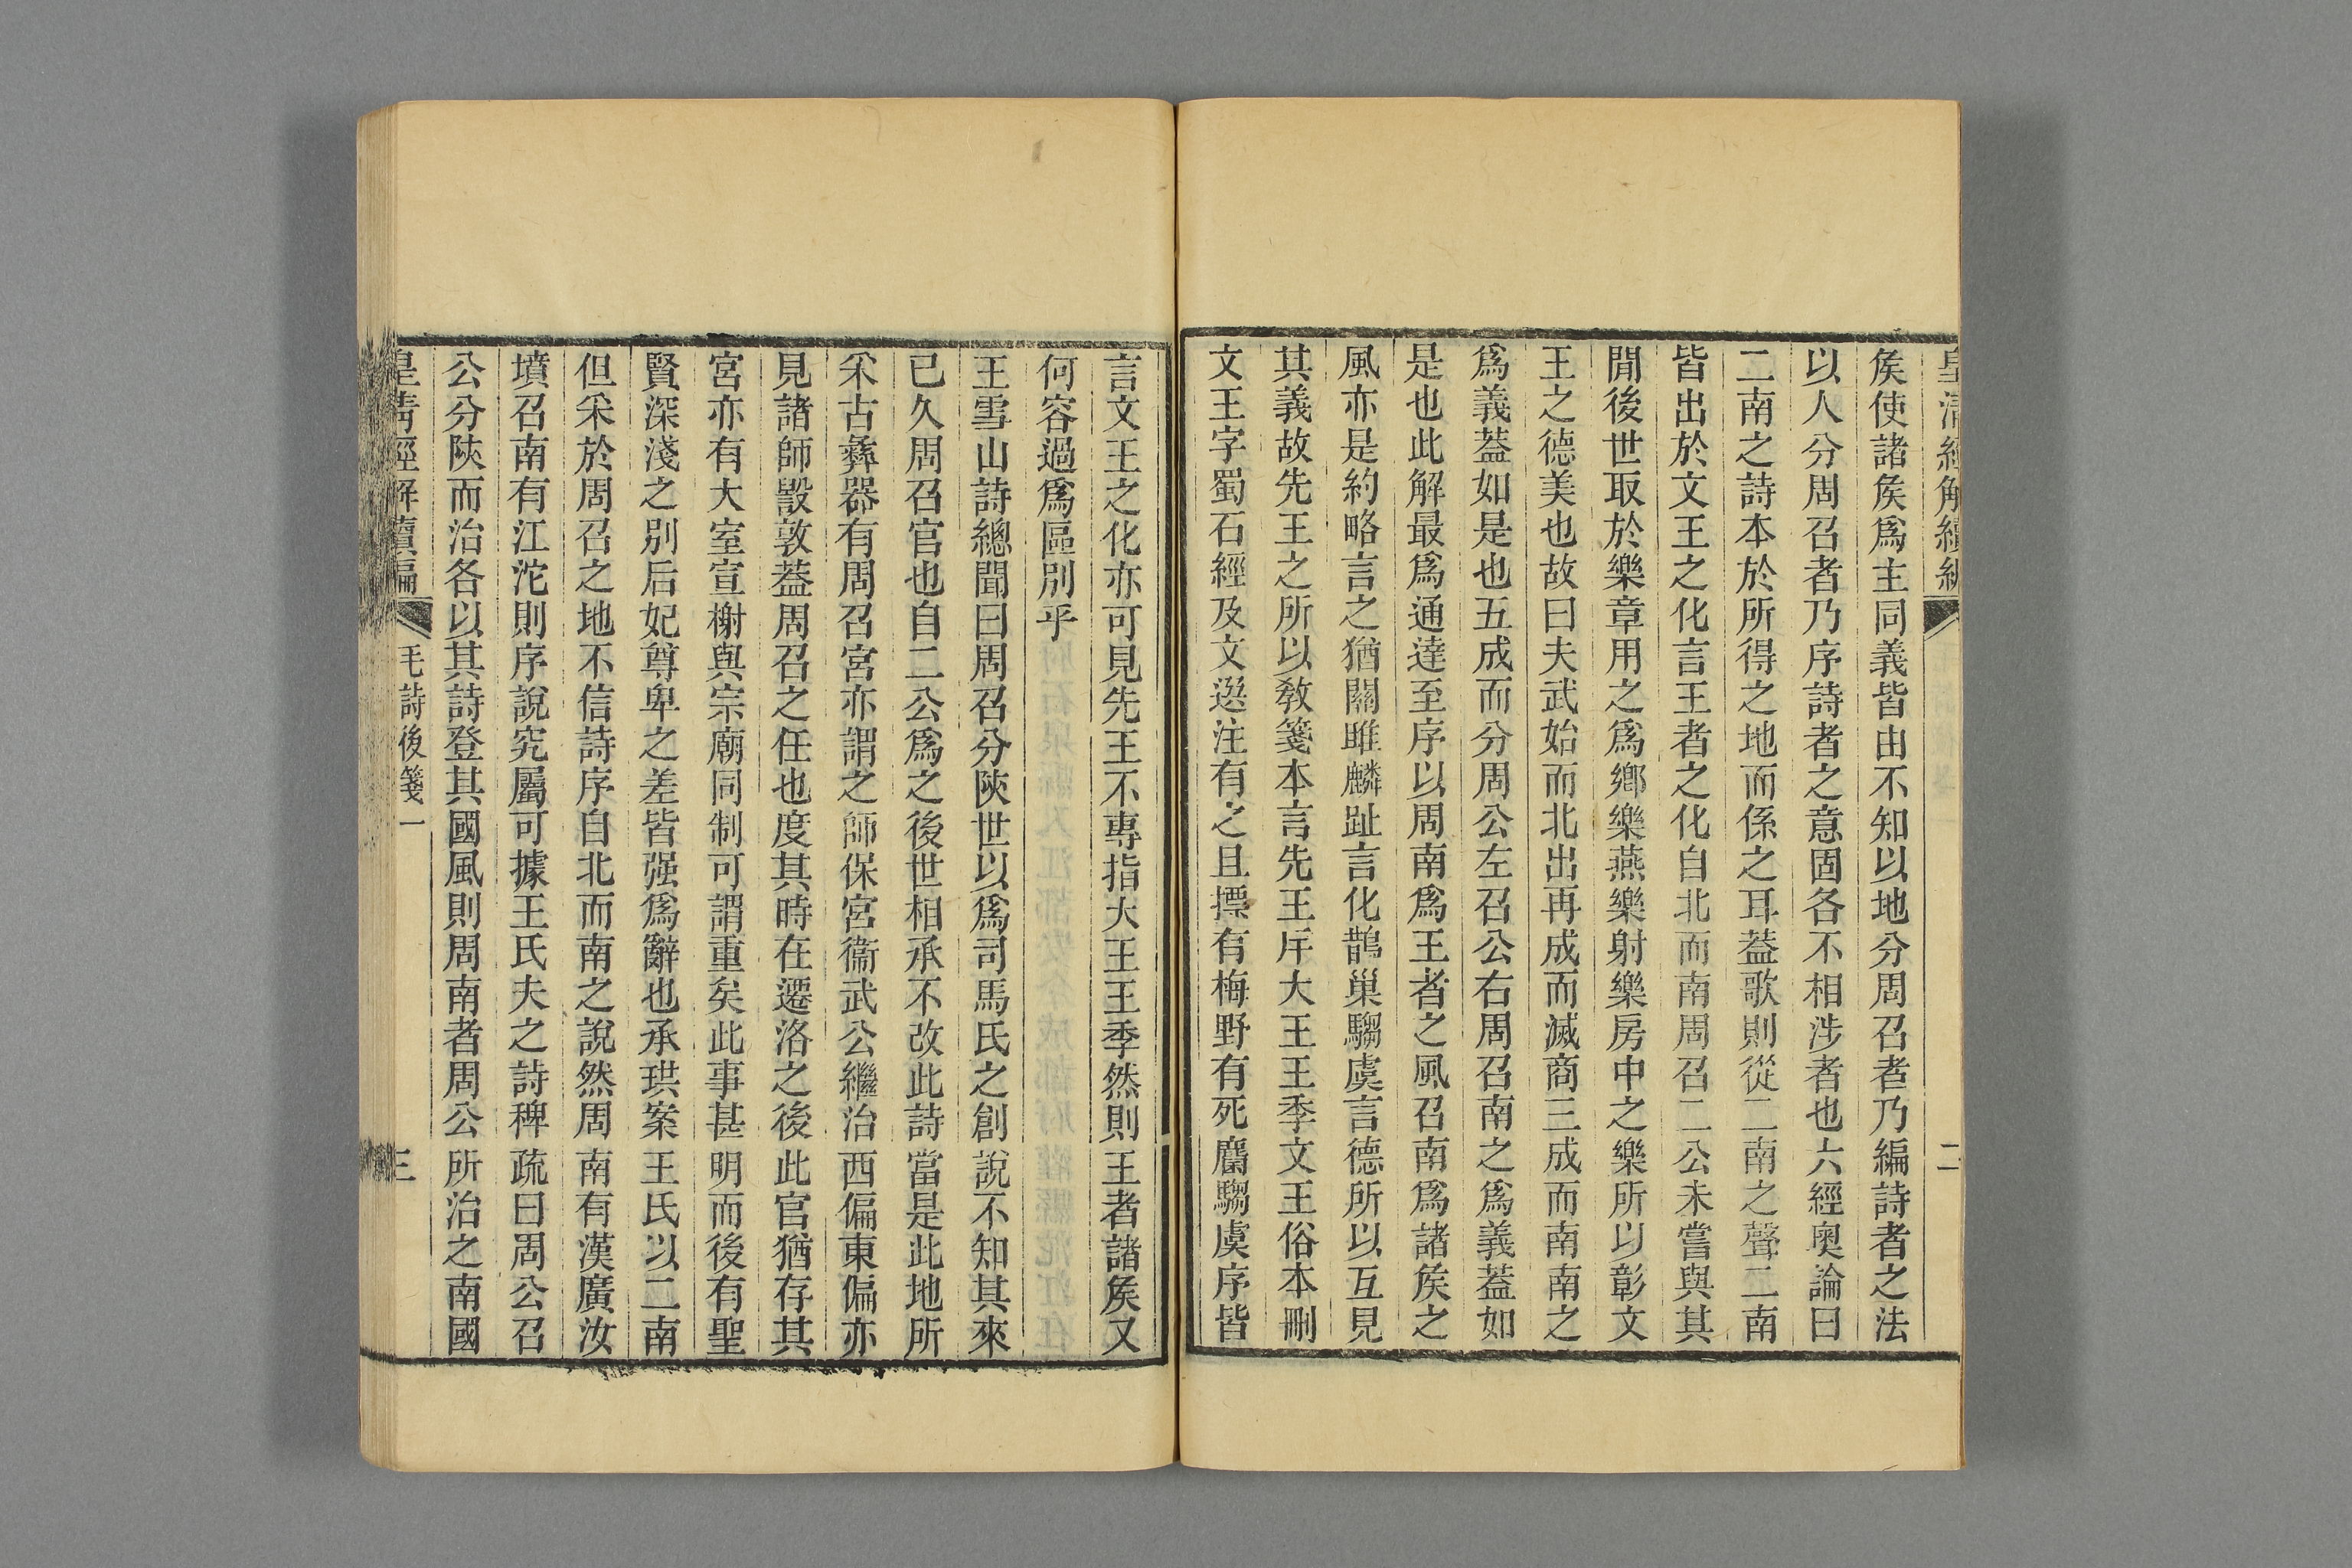 皇清經解續編 二
矦使諸矦爲主同義皆由不知以地分周召者乃編詩者之法
以人分周召者乃序詩者之意固各不相涉者也六經奥論曰
二南之詩本於所得之地而係之耳葢歌則從二南之聲二南
皆出於文王之化言王者之化自北而南周召二公未嘗與其
閒後世取於樂章用之爲鄕樂燕樂射樂房中之樂所以彰文
王之德美也故曰夫武始而北出再成而滅商三成而南南之
爲義葢如是也五成而分周公左召公右周召南之爲義葢如
是也此解最爲通達至序以周南爲王者之風召南爲諸矦之
風亦是約略言之猶關雎麟趾言化鵲巢騶虞言德所以互見
其義故先王之所以敎箋本言先王斥大王王季文王俗本刪
文王字蜀石經及文選注有之且摽有梅野有死麕騶虞序皆
言文王之化亦可見先王不專指大王王季然則王者諸矦又
何容過爲區別乎
王雪山詩總聞曰周召分陝世以爲司馬氏之創說不知其來
已久周召官也自二公爲之後世相承不改此詩當是此地所
采古彝器有周召宮亦謂之師保宮衞武公繼治西偏東偏亦
見諸師毀敦葢周召之任也度其時在遷洛之後此官猶存其
宮亦有大室宣榭與宗廟同制可謂重矣此事甚明而後有聖
賢深淺之別后妃尊卑之差皆强爲辭也承珙案王氏以二南
但采於周召之地不信詩序自北而南之說然周南有漢廣汝
墳召南有江沱則序說究屬可據王氏夫之詩稗疏曰周公召
公分陝而治各以其詩登其國風則周南者周公所治之南國
皇清經解續編 毛詩後箋一 三